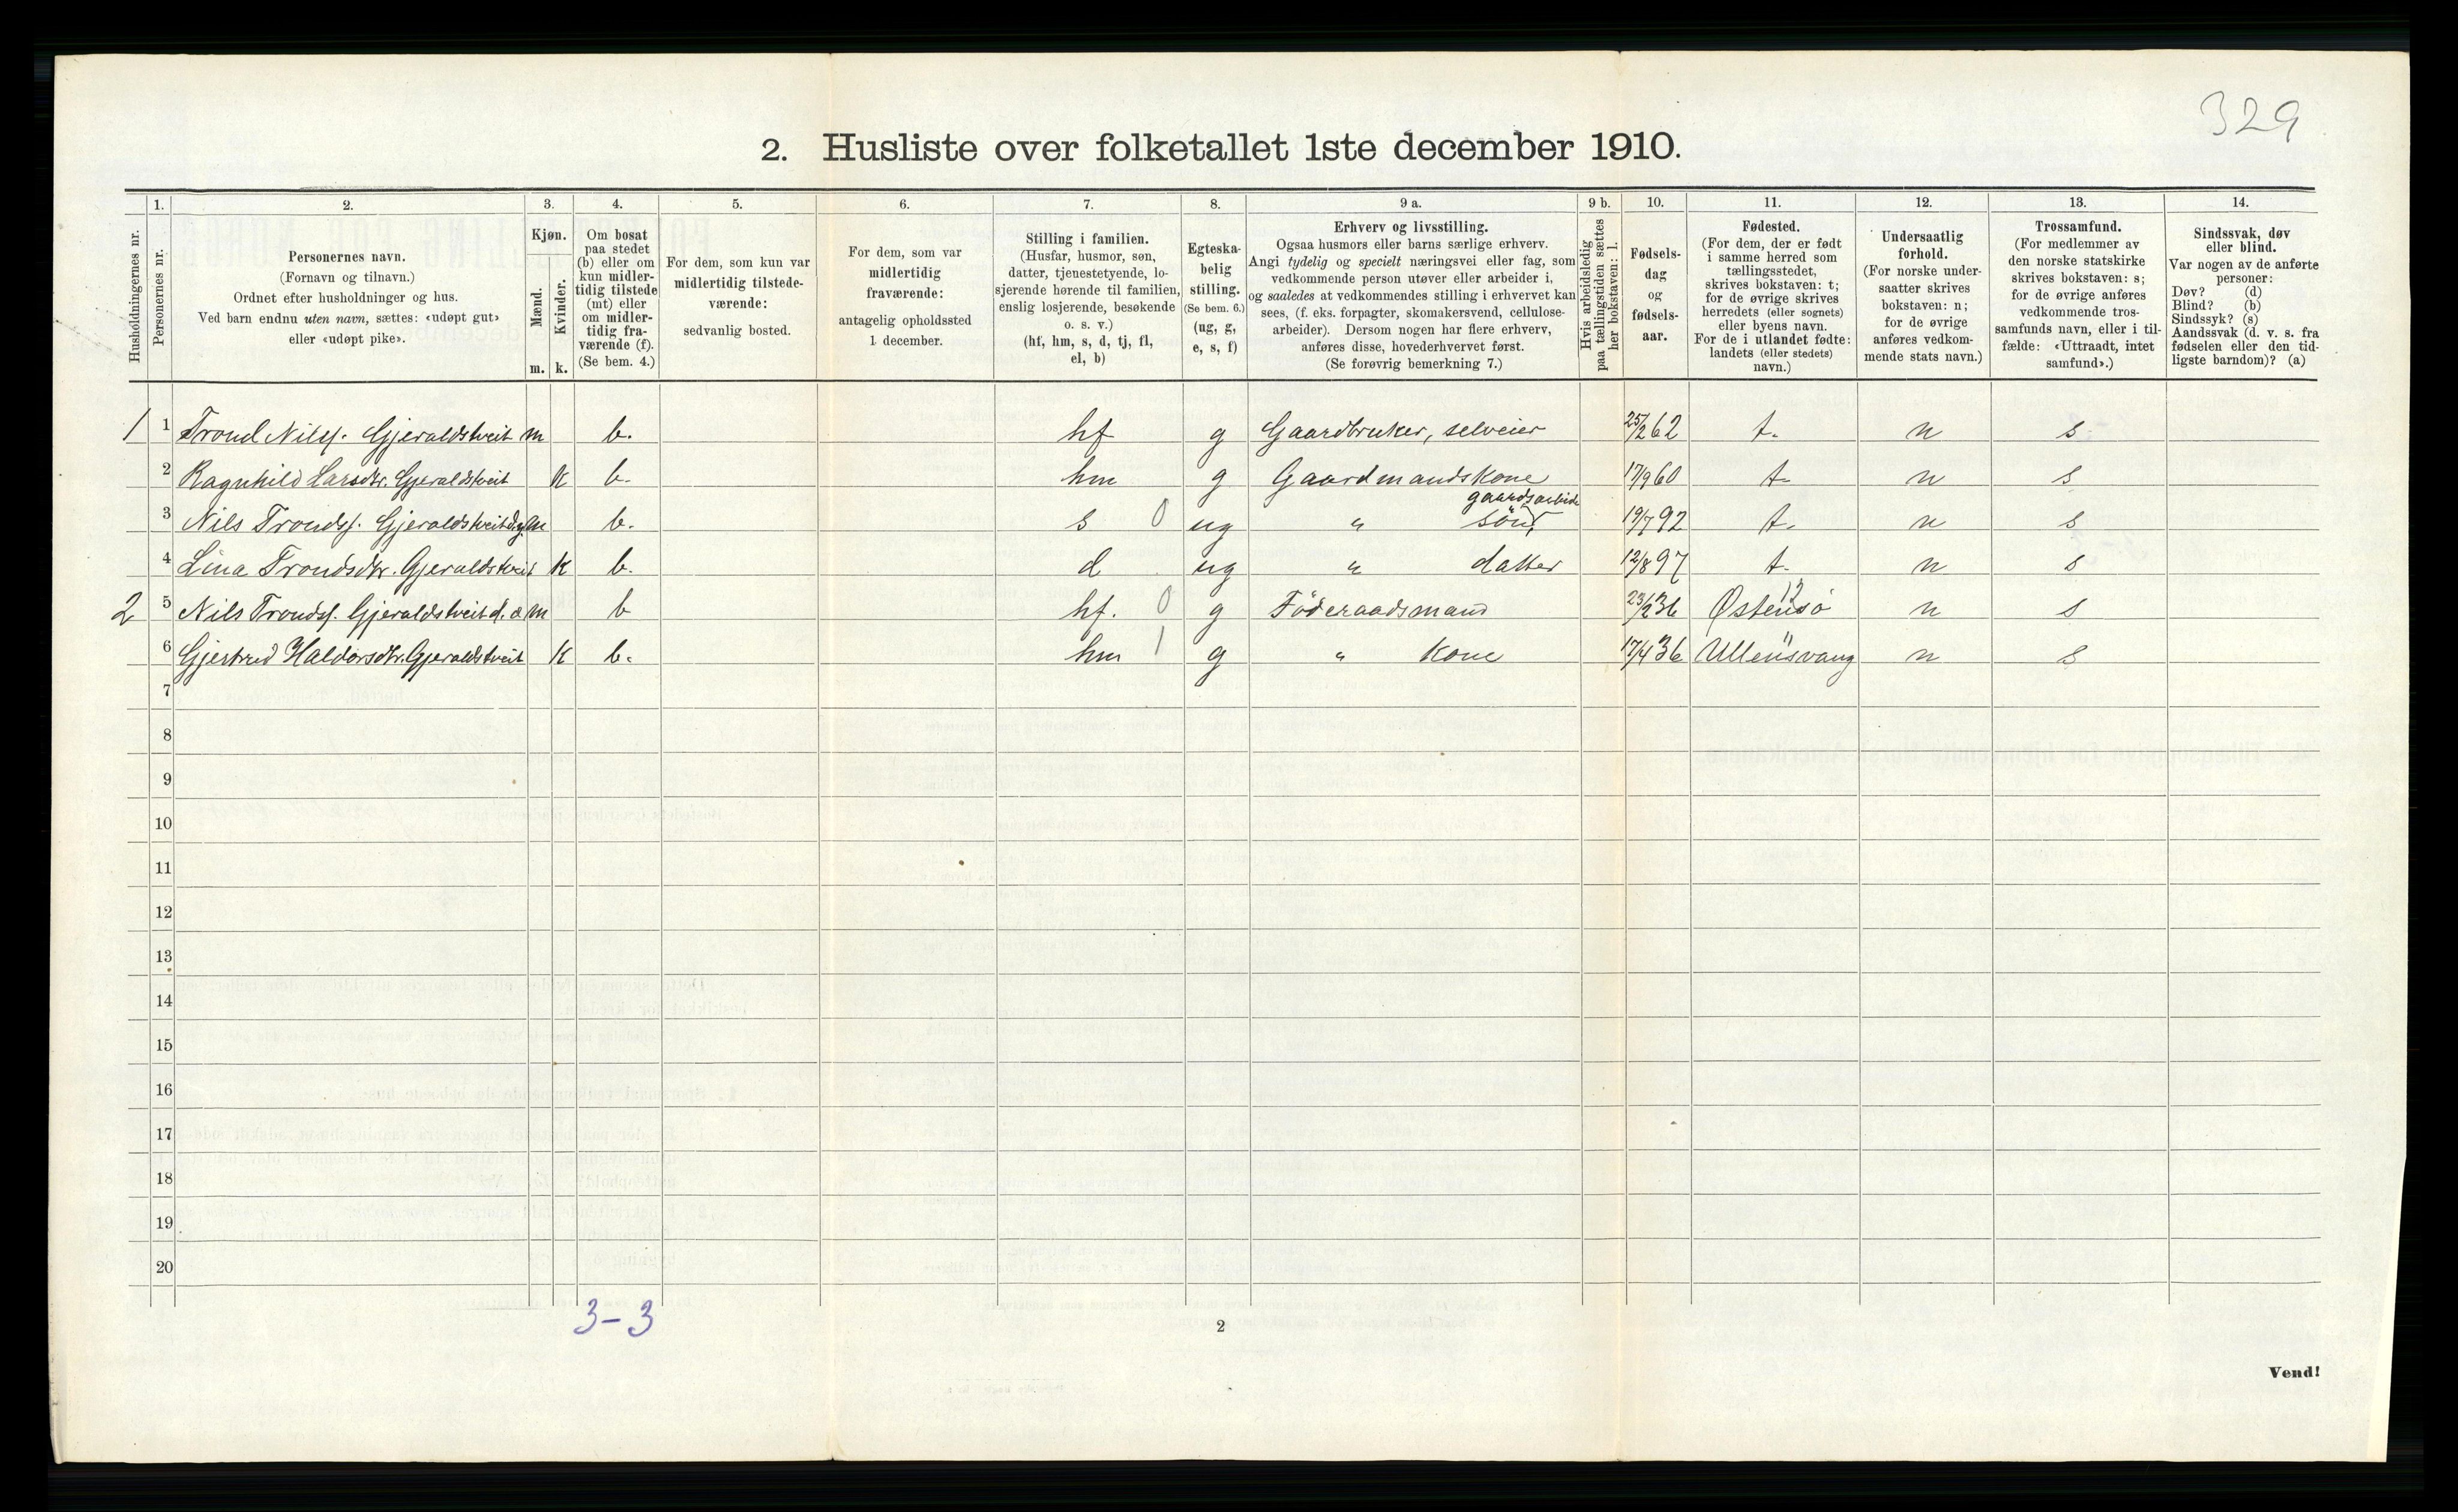 329
2. Husliste over folketallet 1ste december 1910.
Husholdningernes nr.
1. Personernes nr.
2. Personernes navn.
(Fornavn og tilnavn.)
Ordnet efter husholdninger og hus.
Ved barn endnu uten navn, sættes: «udøpt gut»
eller «udøpt pike».
3. Kjøn.
Mænd. Kvinder.
m. k.
4. Om bosat
paa stedet
(b) eller om
kun midler-
tidig tilstede
(mt) eller
om midler-
tidig fra-
værende (f).
(Se bem. 4.)
5. For dem, som kun var
midlertidig tilstede-
værende:
sedvanlig bosted.
6. For dem, som var
midlertidig
fraværende:
antagelig opholdssted
1 december.
7. Stilling i familien.
(Husfar, husmor, søn,
datter, tjenestetyende, lo-
sjerende hørende til familien,
enslig losjerende, besøkende
o. s. v.)
(hf, hm, s, d, tj, fl,
el, b)
8. Egteska-
belig
stilling.
(Se bem. 6.)
(ug, g,
e, s, f)
9 a. Erhverv og livsstilling.
Ogsaa husmors eller barns særlige erhverv.
Angi tydelig og specielt næringsvei eller fag, som
vedkommende person utøver eller arbeider i,
og saaledes at vedkommendes stilling i erhvervet kan
sees, (f. eks. forpagter, skomakersvend, cellulose-
arbeider). Dersom nogen har flere erhverv,
anføres disse, hovederhvervet først.
(Se forøvrig bemerkning 7.)
9 b. Hvis arbeidsledig
paa tællingstiden sættes
her bokstaven: l.
10. Fødsels-
dag
og
fødsels-
aar.
11. Fødested.
(For dem, der er født
i samme herred som
tællingsstedet,
skrives bokstaven: t;
for de øvrige skrives
herredets (eller sognets)
eller byens navn.
For de i utlandet fødte:
landets (eller stedets)
navn.)
12. Undersaatlig
forhold.
(For norske under-
saatter skrives
bokstaven: n;
for de øvrige
anføres vedkom-
mende stats navn.)
13. Trossamfund.
(For medlemmer av
den norske statskirke
skrives bokstaven: s;
for de øvrige anføres
vedkommende tros-
samfunds navn, eller i til-
fælde: «Uttraadt, intet
samfund».)
14. Sindssvak, døv
eller blind.
Var nogen av de anførte
personer:
Døv? (d)
Blind? (b)
Sindssyk? (s)
Aandssvak (d. v. s. fra
fødselen eller den tid-
ligste barndom)? (a)
1 1 Trond Nilss. Gjeraldstveit m b. hf g Gaardbruker, selveier 25/2 62 t. n s
2 Ragnhild Larsdtr. Gjeraldstveit k b. hm g Gaardmandskone 17/9 60 t. n s
gaardsarbeide
3 Nils Tronds. Gjeraldstveit d.y. m b. s 0 ug " søn, 19/7 92 t. n s
4 Lina Trondsdtr. Gjeraldstveit k b. d ug " datter 12/8 97 t. n s
12
2 5 Nils Tronds. Gjeraldstveit d. æ m b hf. 0 g Föderaadsmand 23/2 36 Østensø n s
6 Gjertrud Haldorsdtr. Gjeraldstveit k b. hm 1 g " Kone 17/4 36 Ullensvang n s
7
8
9
10
11
12
13
14
15
16
17
18
19
20
3-3
2
Vend!